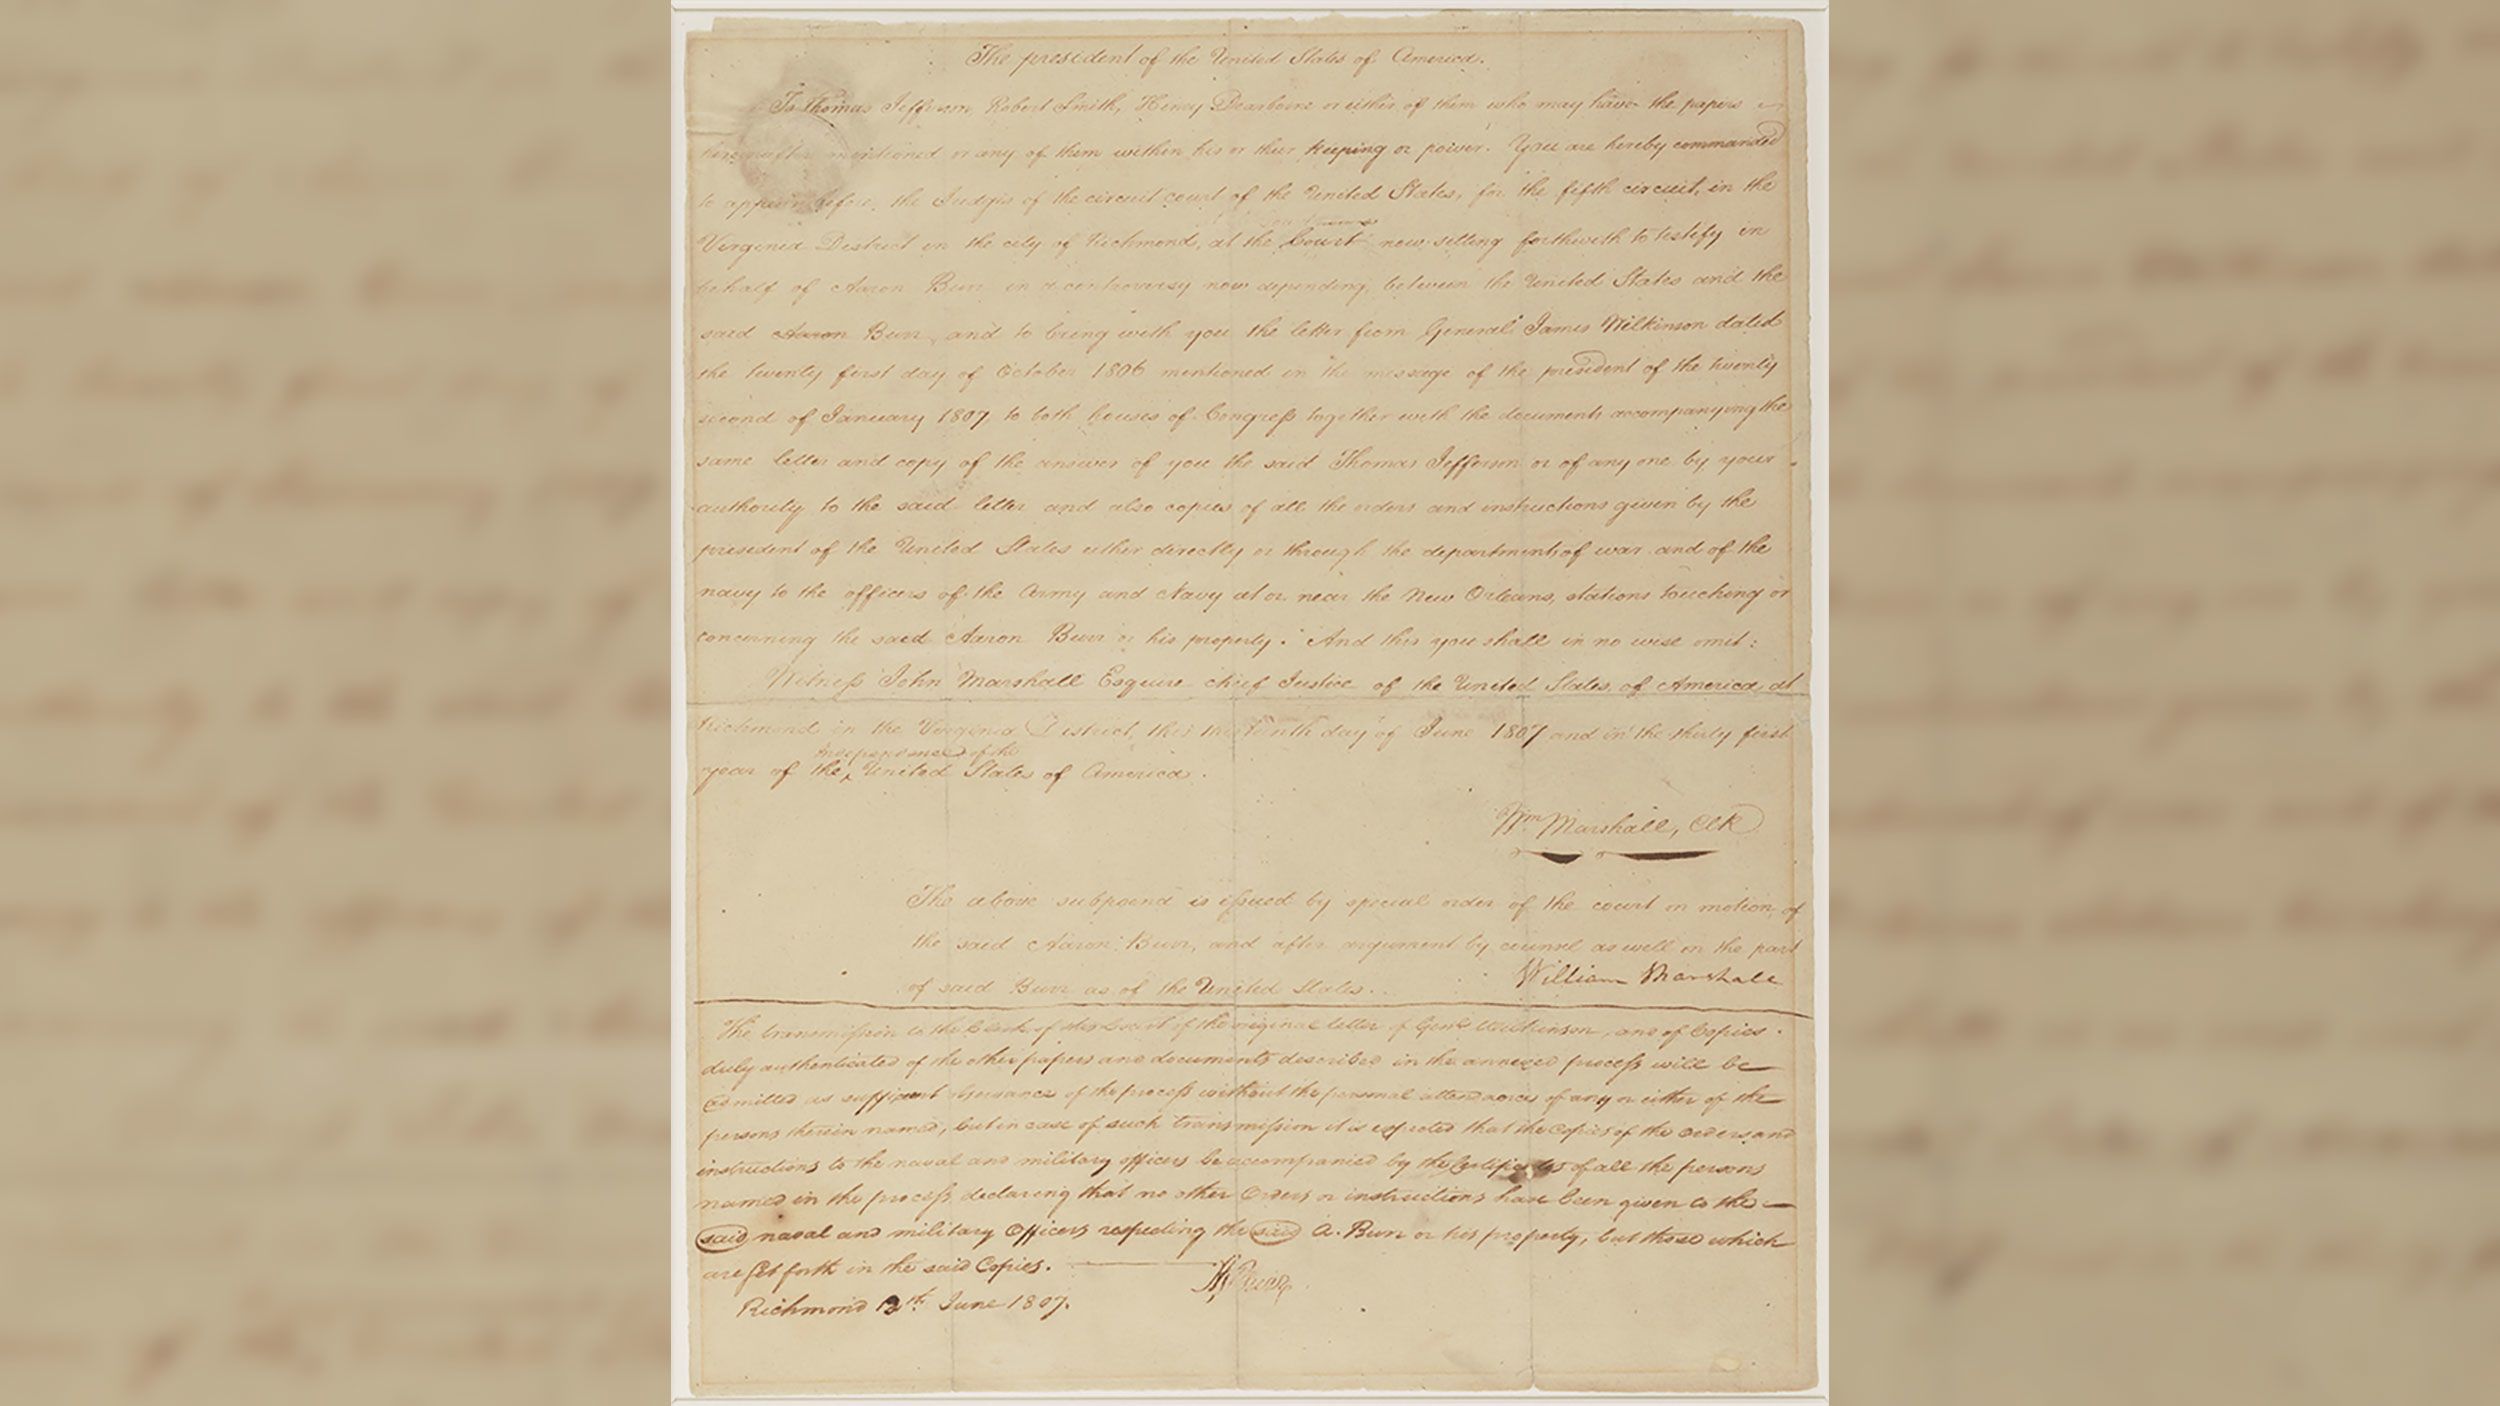 The president of the United States of America.
To Thomas Jefferson, Robert Smith, Henry Dearborne or either of them who may have the papers
hereinafter mentioned or any of them within his or their keeping or power. You are hereby commanded
to appear before the Judges of the circuit court of the United States, for the fifth circuit, in the
Virginia District in the city of Richmond, at the Court now sitting forthwith to testify in
behalf of Aaron Burr in a controversy now depending between the United States and the
said Aaron Burr, and to bring with you the letter from General James Wilkinson dated
the twenty first day of October 1806 mentioned in the message of the president of the twenty
second of January 1807, to both houses of Congress together with the documents accompanying the
same letter and copy of the answer of you the said Thomas Jefferson or of any one by your
authority to the said letter and also copies of all the orders and instructions given by the
president of the United States either directly or through the departments of war and of the
navy to the officers of the Army and Navy at or near the New Orleans, stations touching or
concerning the said Aaron Burr or his property. And this you shall in no wise omit:
Witness John Marshall Esquire chief Justice of the United States of America, at
Richmond in the Virginia District, this thirteenth day of June 1807 and in the thirty first
independence of the
year of the United States of America.
Wm Marshall, Clk
The above subpoena is issued by special order of the court on motion of
the said Aaron Burr, and after argument by counsel as well on the part
of said Burr as of the United States.
William Marshall
The transmission to the Clerk of this Court of the original letter of Genl Wilkinson, and of Copies
duly authenticated of the other papers and documents described in the annexed process will be
admitted as sufficient observance of the process without the personal attendance of any or either of the
persons therein named, but in case of such transmission it is expected that the Copies of the orders and
instructions to the naval and military officers be accompanied by the Certificates of all the persons
named in the process declaring that no other Orders or instructions have been given to the
said naval and military Officers respecting the said A. Burr or his property, but those which
are set forth in the said Copies.
A Burr
Richmond 12th June 1807.